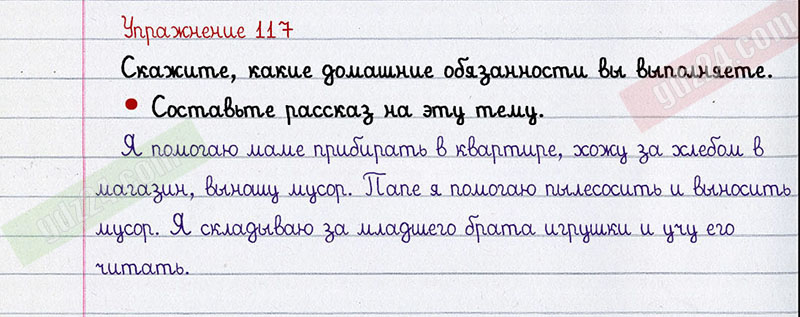 Упражнение 117
Скажите, какие домашние обязанности вы выполняете.
• Составьте рассказ на эту тему.
Я помогаю маме прибирать в квартире, хожу за хлебом в
магазин, вынашу мусор. Папе я помогаю пылесосить и выносить
мусор. Я складываю за младшего брата игрушки и учу его
читать.
gdz24.com
gdz24.com